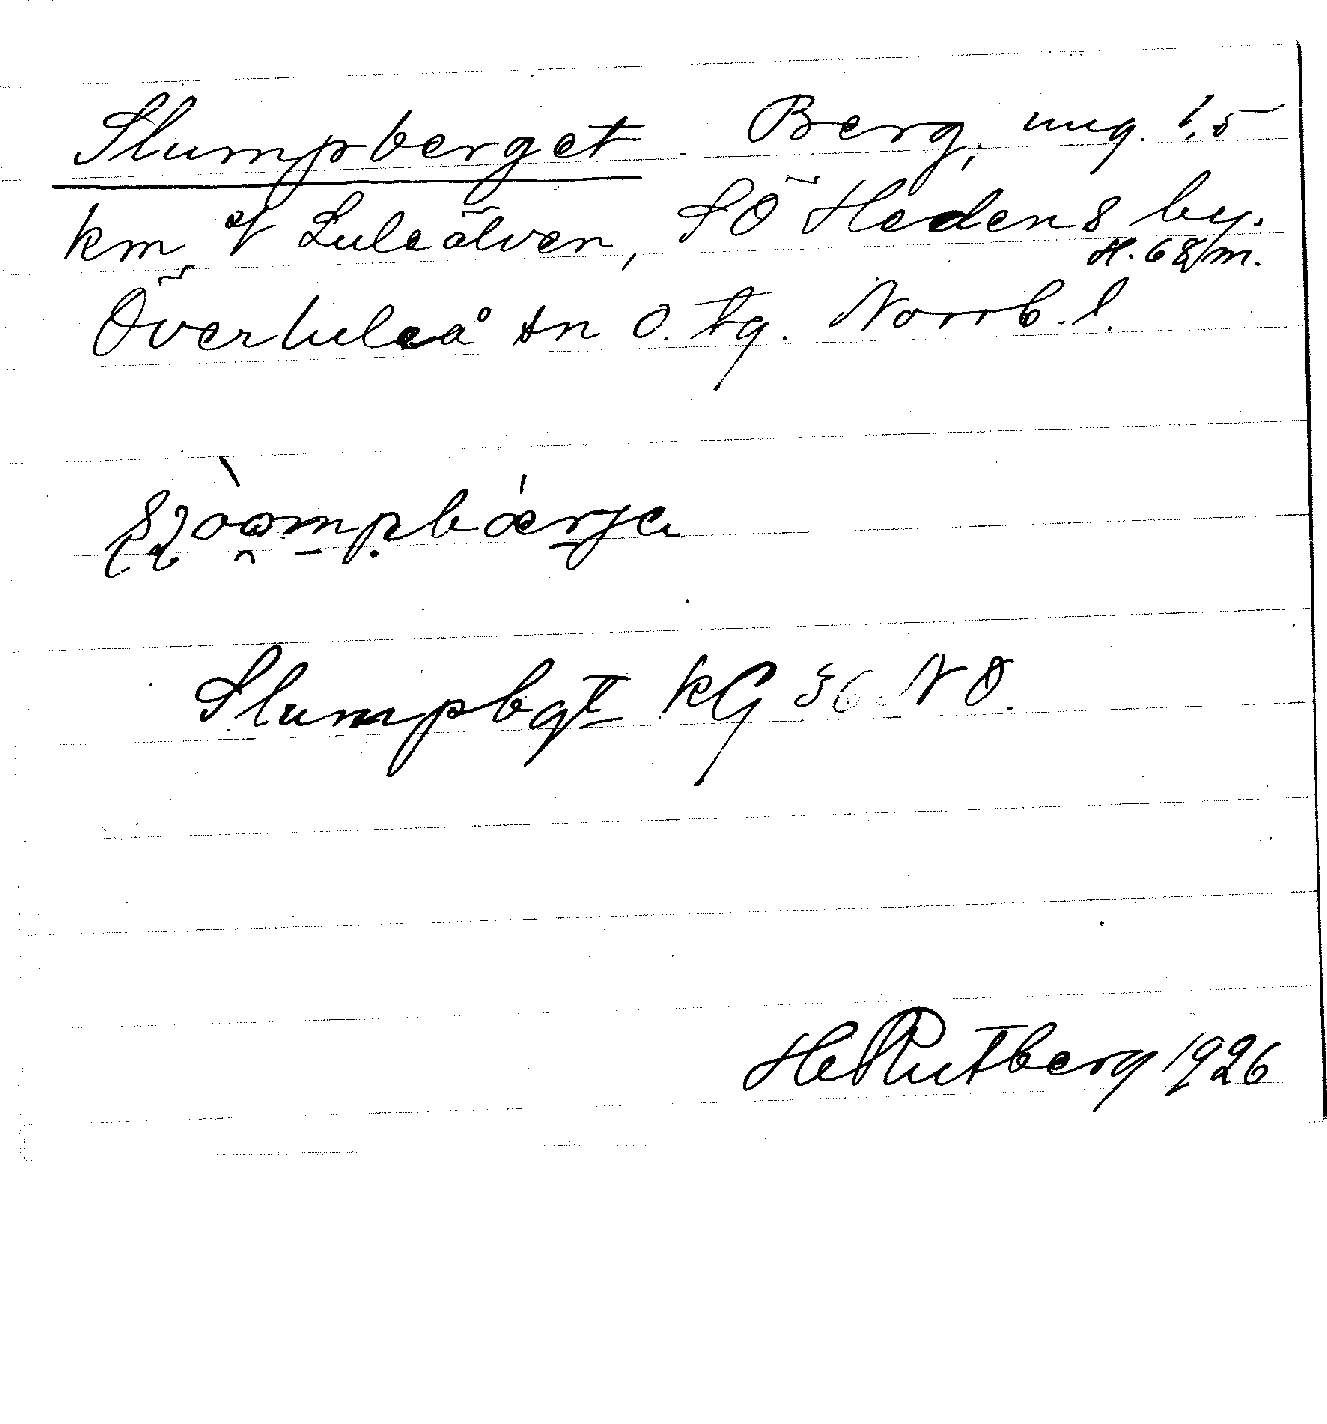 Slumpberget. Berg, ung. 1,5
km af Luleälven, SÖ Hedens by.
H. 68 m.
Överluleå sn o. tg. Norrb. l.
Slumpbgt KG 36 NO.
He Rutberg 1926